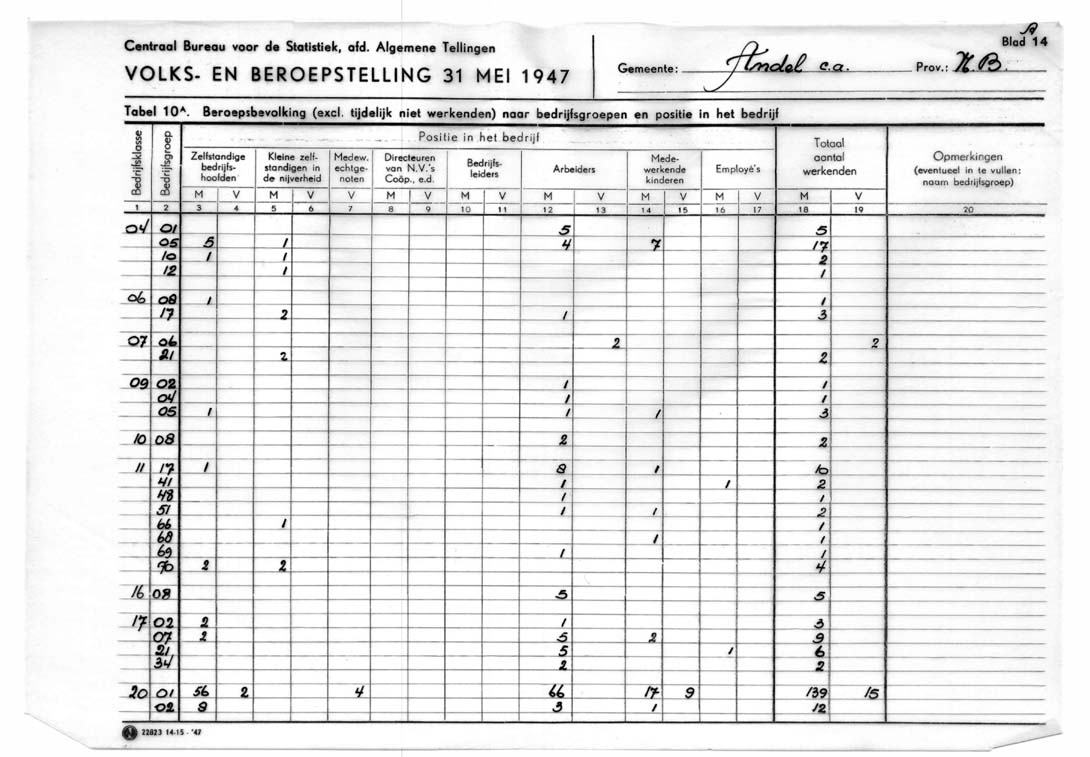 A
Centraal Bureau voor de Statistiek, afd. Algemene Tellingen
Blad 14
VOLKS- EN BEROEPSTELLING 31 MEI 1947
Gemeente: Andel c.a. Prov.: N.B.
Tabel 10A. Beroepsbevolking (excl. tijdelijk niet werkenden) naar bedrijfsgroepen en positie in het bedrijf
Bedrijfsklasse
Bedrijfsgroep
Positie in het bedrijf
Zelfstandige bedrijfs-hoofden
Kleine zelf-standigen in de nijverheid
Medew. echtge-noten
Directeuren van N.V.'s Coöp., e.d.
Bedrijfs-leiders
Arbeiders
Mede-werkende kinderen
Employé's
Totaal aantal werkenden
Opmerkingen (eventueel in te vullen: naam bedrijfsgroep)
M V M V V M V M V M V M V M V M V
1 2 3 4 5 6 7 8 9 10 11 12 13 14 15 16 17 18 19 20
04 01 5 5
05 5 1 4 7 17
10 1 1 2
12 1 1
06 08 1 1
17 2 1 3
07 06 2 2
21 2 2
09 02 1 1
04 1 1
05 1 1 1 3
10 08 2 2
11 17 1 8 1 10
41 1 1 2
48 1 1
51 1 1 2
66 1 1
68 1 1
69 1 1
70 2 2 4
16 08 5 5
17 02 2 1 3
07 2 5 2 9
21 5 1 6
34 2 2
20 01 56 2 4 66 17 9 139 15
02 8 3 1 12
22823 14-15 - '47